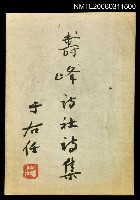 NMTL20060311600
壽峰詩社詩集
于右任